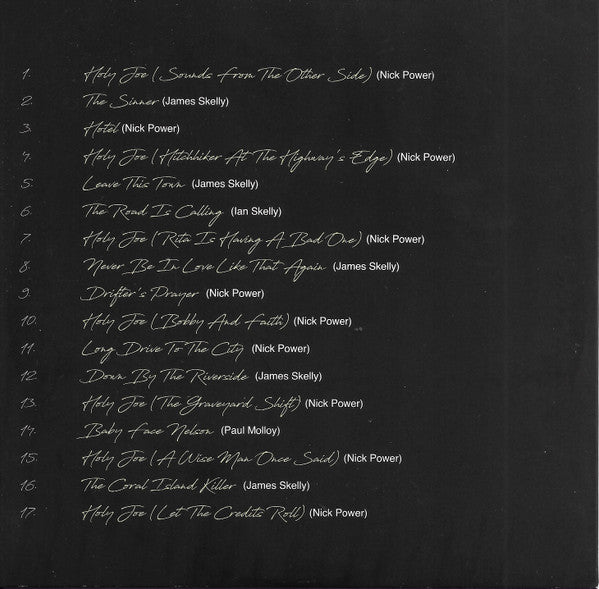 1. Holy Joe (Sounds From The Other Side) (Nick Power)
2. The Sinner (James Skelly)
3. Hotel (Nick Power)
4. Holy Joe (Hitchhiker At The Highway's Edge) (Nick Power)
5. Leave This Town (James Skelly)
6. The Road Is Calling (Ian Skelly)
7. Holy Joe (Rita Is Having A Bad One) (Nick Power)
8. Never Be In Love Like That Again (James Skelly)
9. Drifter's Prayer (Nick Power)
10. Holy Joe (Bobby And Faith) (Nick Power)
11. Long Drive To The City (Nick Power)
12. Down By The Riverside (James Skelly)
13. Holy Joe (The Graveyard Shift) (Nick Power)
14. Baby Face Nelson (Paul Molloy)
15. Holy Joe (A Wise Man Once Said) (Nick Power)
16. The Coral Island Killer (James Skelly)
17. Holy Joe (Let The Credits Roll) (Nick Power)